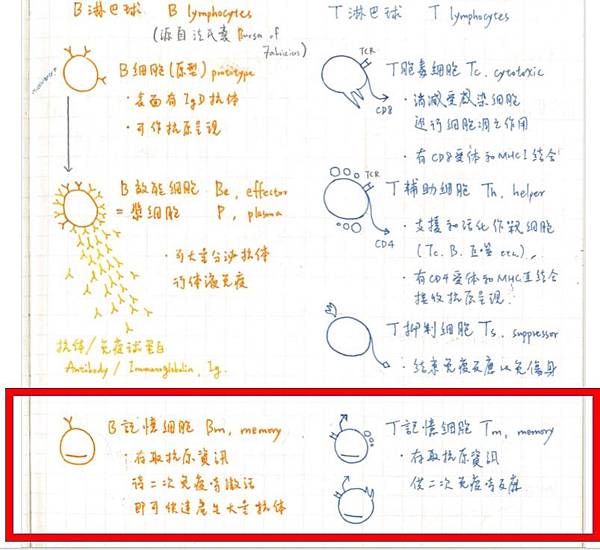 B 淋巴球 B lymphocytes
(源自法氏囊 Bursa of Fabricius)
B細胞 (原型) prototype
・表面有 IgD 抗体
・可作抗原呈現
B 效能細胞 Be, effector
= 漿細胞 P, plasma
・可大量分泌抗体
行体液免疫
抗体/免疫球蛋白
Antibody / Immunoglobulin, Ig.
B記憶細胞 Bm, memory
・存取抗原資訊
待二次免疫時激活
即可快速產生大量抗体
T 淋巴球 T lymphocytes
TCR
CD8
T胞毒細胞 Tc, cytotoxic
・消滅受感染細胞
進行細胞凋亡作用
・有CD8受体和MHC I結合
TCR
CD4
T 輔助細胞 Th, helper
・支援和活化作戰細胞
(Tc. B. 巨噬 etc.)
・有CD4受体和MHC II結合
接收抗原呈現.
T抑制細胞 Ts, suppressor
・結束免疫反應以免傷身
T記憶細胞 Tm, memory
・存取抗原資訊
供二次免疫時反應